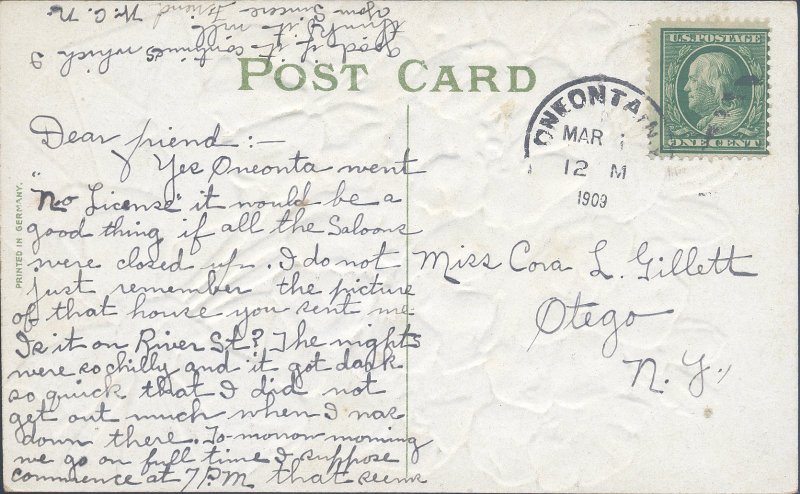 POST CARD
U.S. POSTAGE
ONE CENT
ONEONTA, N.
MAR 1
12 M
1909
PRINTED IN GERMANY.
Dear friend:—
Yes Oneonta went
"No License" it would be a
good thing if all the Saloons
were closed up. I do not
just remember the picture
of that house you sent me
Is it on River St? The nights
were so chilly and it got dark
so quick that I did not
get out much when I was
down there. To-morrow morning
we go on full time I suppose
commence at 7 P.M. that seems
good if it continues which I
think it will.
Your Sincere Friend
W. C. N.
Miss Cora L. Gillett
Otego
N. Y.,